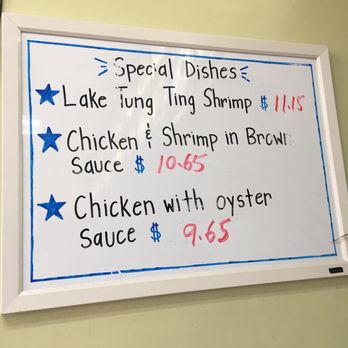 Special Dishes
Lake Tung Ting Shrimp $ 11.15
Chicken & Shrimp in Brown
Sauce $ 10.65
Chicken with oyster
Sauce $ 9.65